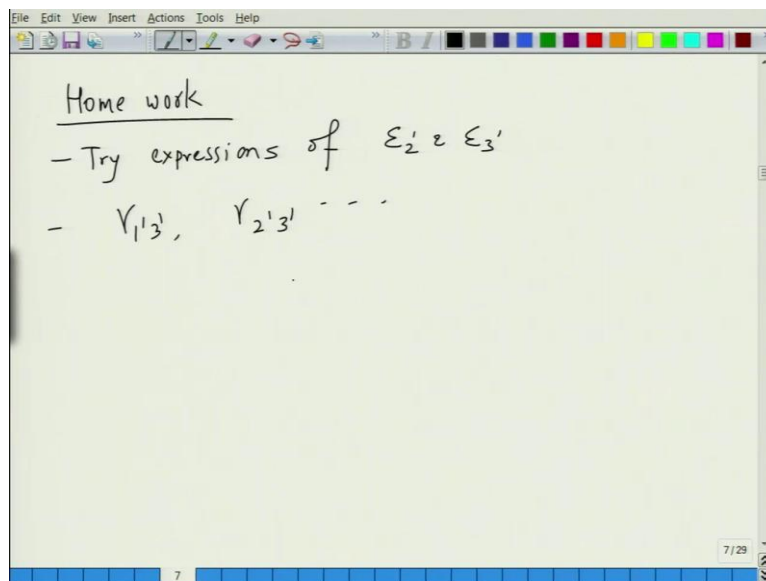 File Edit View Insert Actions Tools Help
B I
Home work
- Try expressions of ε₂' & ε₃'
- γ₁'₃', γ₂'₃' - - -
7/29
7